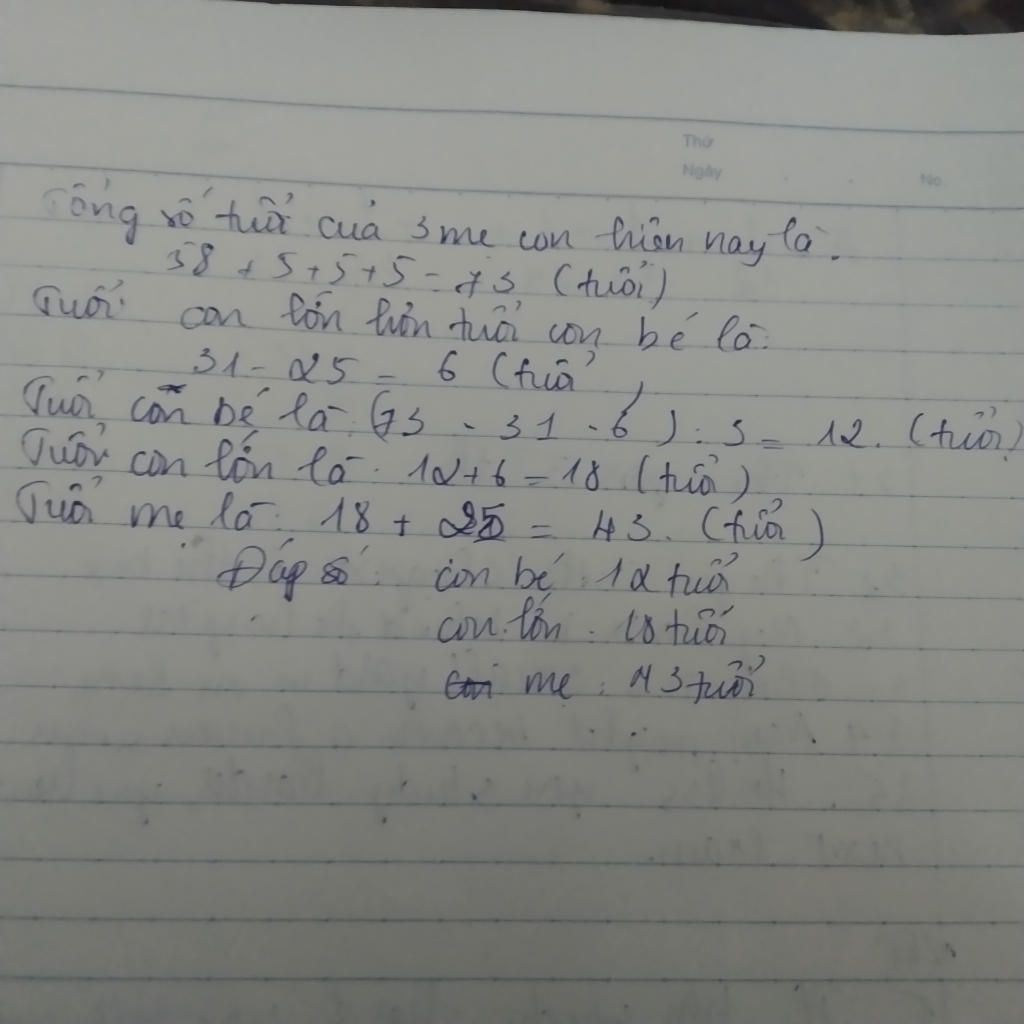 Thứ
Ngày
No
Tổng số tuổi của 3 mẹ con hiện nay là.
58 + 5 + 5 + 5 = 73 (tuổi)
Tuổi con lớn hơn tuổi con bé là:
31 - 25 = 6 (tuổi)
Tuổi con bé là: (73 - 31 - 6) : 3 = 12. (tuổi)
Tuổi con lớn là: 12 + 6 = 18 (tuổi)
Tuổi mẹ là: 18 + 25 = 43. (tuổi)
Đáp số: con bé: 12 tuổi
con lớn: 18 tuổi
mẹ: 43 tuổi